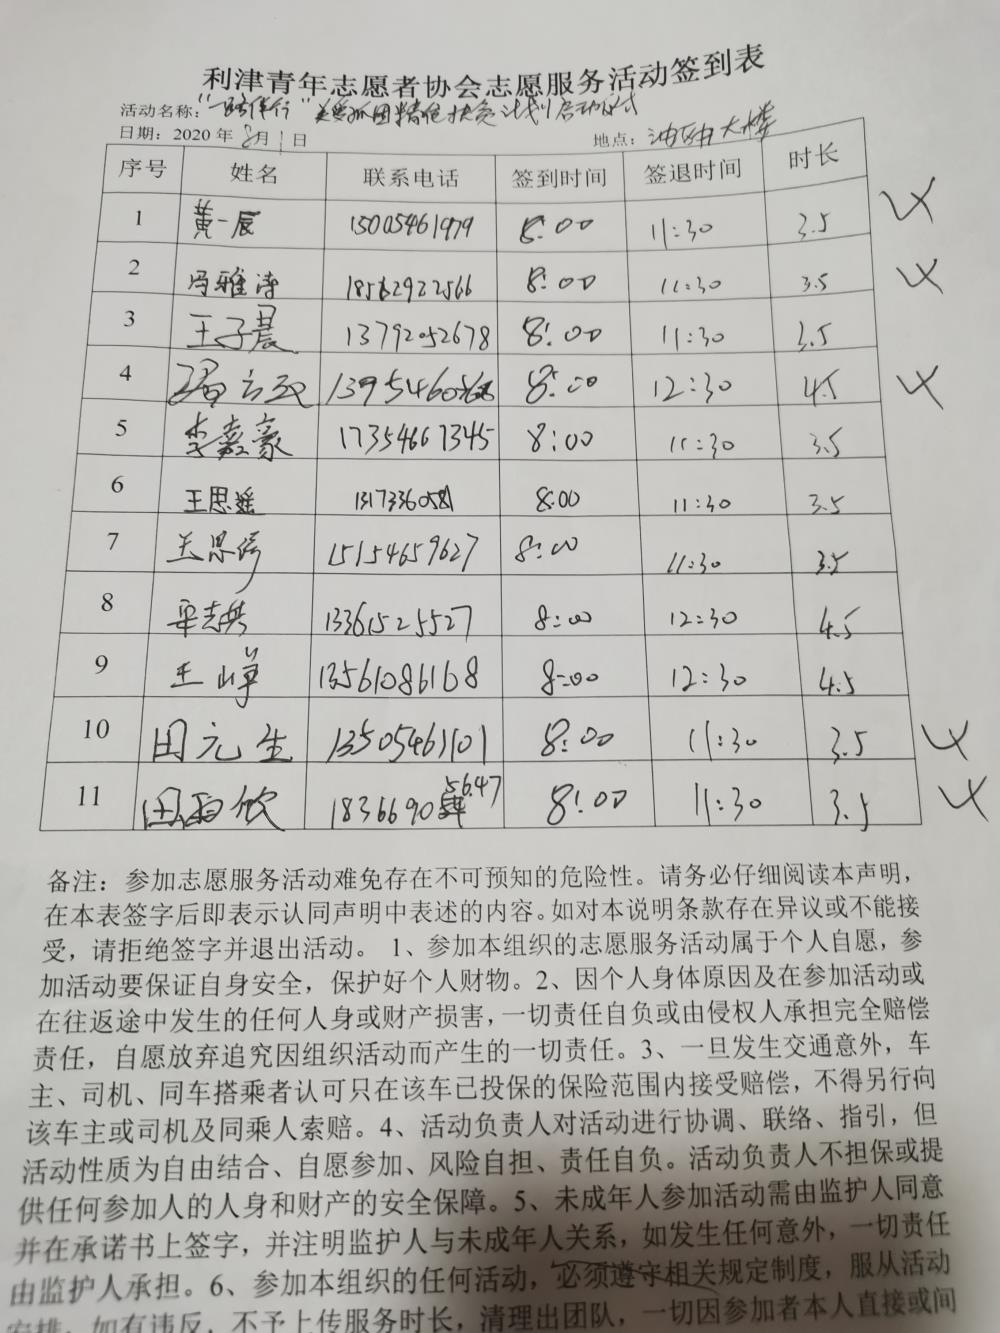 利津青年志愿者协会志愿服务活动签到表
活动名称：“一路伴行”关爱孤困精准扶贫计划启动仪式
日期：2020 年 8月1日 地点：油地大楼
序号 姓名 联系电话 签到时间 签退时间 时长
1 黄一辰 15005461979 8:00 11:30 3.5
2 冯雅涛 18562922566 8:00 11:30 3.5
3 王子晨 13792052678 8:00 11:30 3.5
4 8:00 12:30 4.5
5 李嘉豪 17354667345 8:00 11:30 3.5
6 王思遥 8:00 11:30 3.5
7 王思 15154659627 8:00 11:30 3.5
8 志 13361525527 8:00 12:30 4.5
9 王峰 13561086168 8:00 12:30 4.5
10 田元生 13505461101 8:00 11:30 3.5
11 田欣 18366905647 8:00 11:30 3.5
备注：参加志愿服务活动难免存在不可预知的危险性。请务必仔细阅读本声明，
在本表签字后即表示认同声明中表述的内容。如对本说明条款存在异议或不能接
受，请拒绝签字并退出活动。 1、参加本组织的志愿服务活动属于个人自愿，参
加活动要保证自身安全，保护好个人财物。2、因个人身体原因及在参加活动或
在往返途中发生的任何人身或财产损害，一切责任自负或由侵权人承担完全赔偿
责任，自愿放弃追究因组织活动而产生的一切责任。3、一旦发生交通意外，车
主、司机、同车搭乘者认可只在该车已投保的保险范围内接受赔偿，不得另行向
该车主或司机及同乘人索赔。4、活动负责人对活动进行协调、联络、指引，但
活动性质为自由结合、自愿参加、风险自担、责任自负。活动负责人不担保或提
供任何参加人的人身和财产的安全保障。5、未成年人参加活动需由监护人同意
并在承诺书上签字，并注明监护人与未成年人关系，如发生任何意外，一切责任
由监护人承担。6、参加本组织的任何活动，必须遵守相关规定制度，服从活动
安排。如有违反，不予上传服务时长，清理出团队，一切因参加者本人直接或间